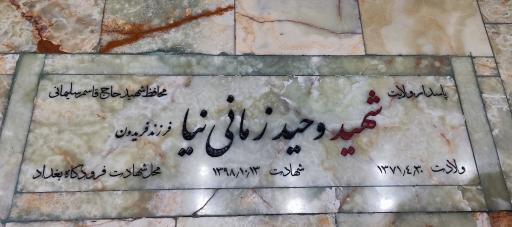 پاسدار ولایت
محافظ شهید حاج قاسم سلیمانی
شهید وحید زمانی نیا فرزند فریدون
ولادت ۱۳۷۱٫۴٫۳۰
شهادت ۱۳۹۸٫۱۰٫۱۳
محل شهادت فرودگاه بغداد